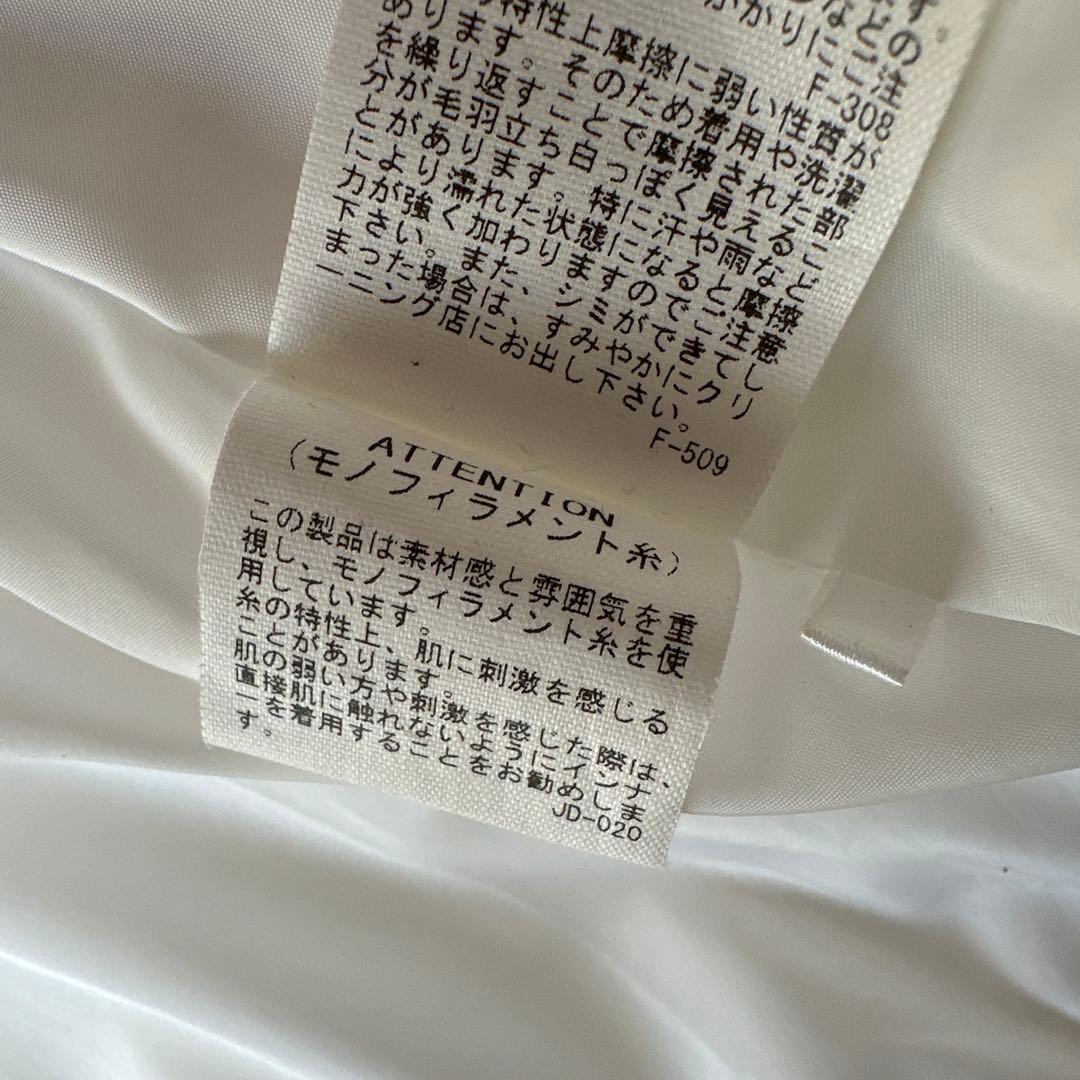 F-308
特性上摩擦に弱い性質が
ります。そのため着用や洗濯
を繰り返すことで摩擦された部
分が毛羽立ち白っぽく見えるこ
とがあります。特に汗や雨など
により濡れた状態になると摩擦
力が強く加わりますのでご注意
下さい。また、シミができてし
まった場合は、すみやかにクリ
ーニング店にお出し下さい。
F-509
ATTENTION
（モノフィラメント糸）
この製品は素材感と雰囲気を重
視し、モノフィラメント糸を使
用しています。
糸の特性上、肌に刺激を感じる
ことがあります。
肌の弱い方や刺激を感じた際は、
直接肌に触れないようにインナ
ーを着用することをお勧めしま
す。
JD-020